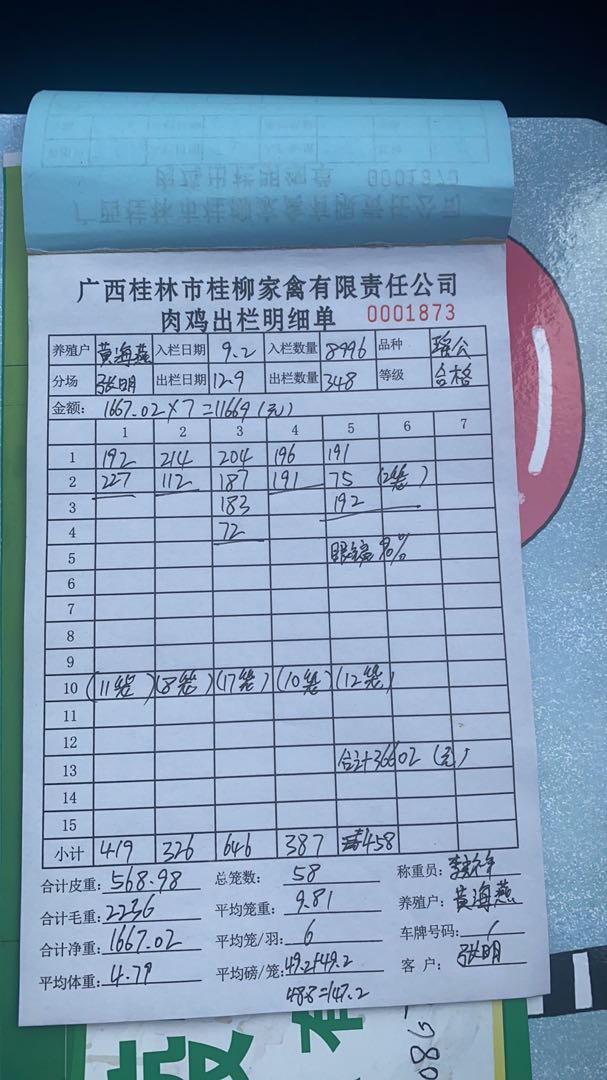 肉鸡出栏明细单 0001873
广西桂林市桂柳家禽有限责任公司
广西桂林市桂柳家禽有限责任公司
肉鸡出栏明细单 0001873
养殖户 黄海燕 入栏日期 9.2 入栏数量 8996 品种 瑶公
分场 张明 出栏日期 12.9 出栏数量 348 等级 合格
金额: 1667.02×7=11669(元)
1 2 3 4 5 6 7
1 192 214 204 196 191
2 227 112 187 191 75 (2笼)
3 183 192
4 72
5 眼镜 90%
6
7
8
9
10 (11笼) (8笼) (17笼) (10笼) (12笼)
11
12
13 合计36602(元)
14
15
小计 419 326 646 387 458
合计皮重: 568.98 总笼数: 58 称重员:
合计毛重: 2236 平均笼重: 9.81 养殖户: 黄海燕
合计净重: 1667.02 平均笼/羽: 6 车牌号码: /
平均体重: 4.79 平均磅/笼: 49.2+49.2 客户: 张明
48.8=147.2